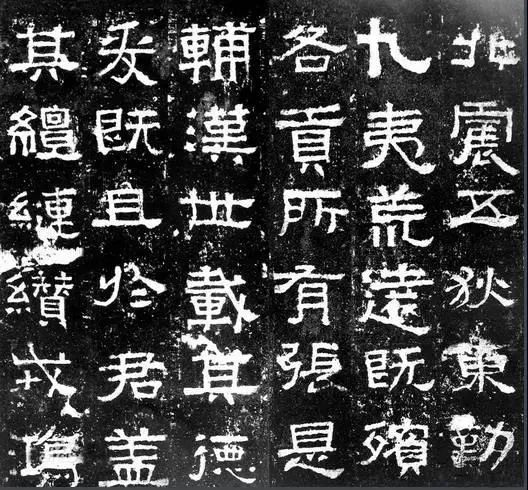 北震五狄東勤
九夷荒遠既殯
各貢所有張是
輔漢世載其德
爰既且於君盖
其纘縺纘戎鴻